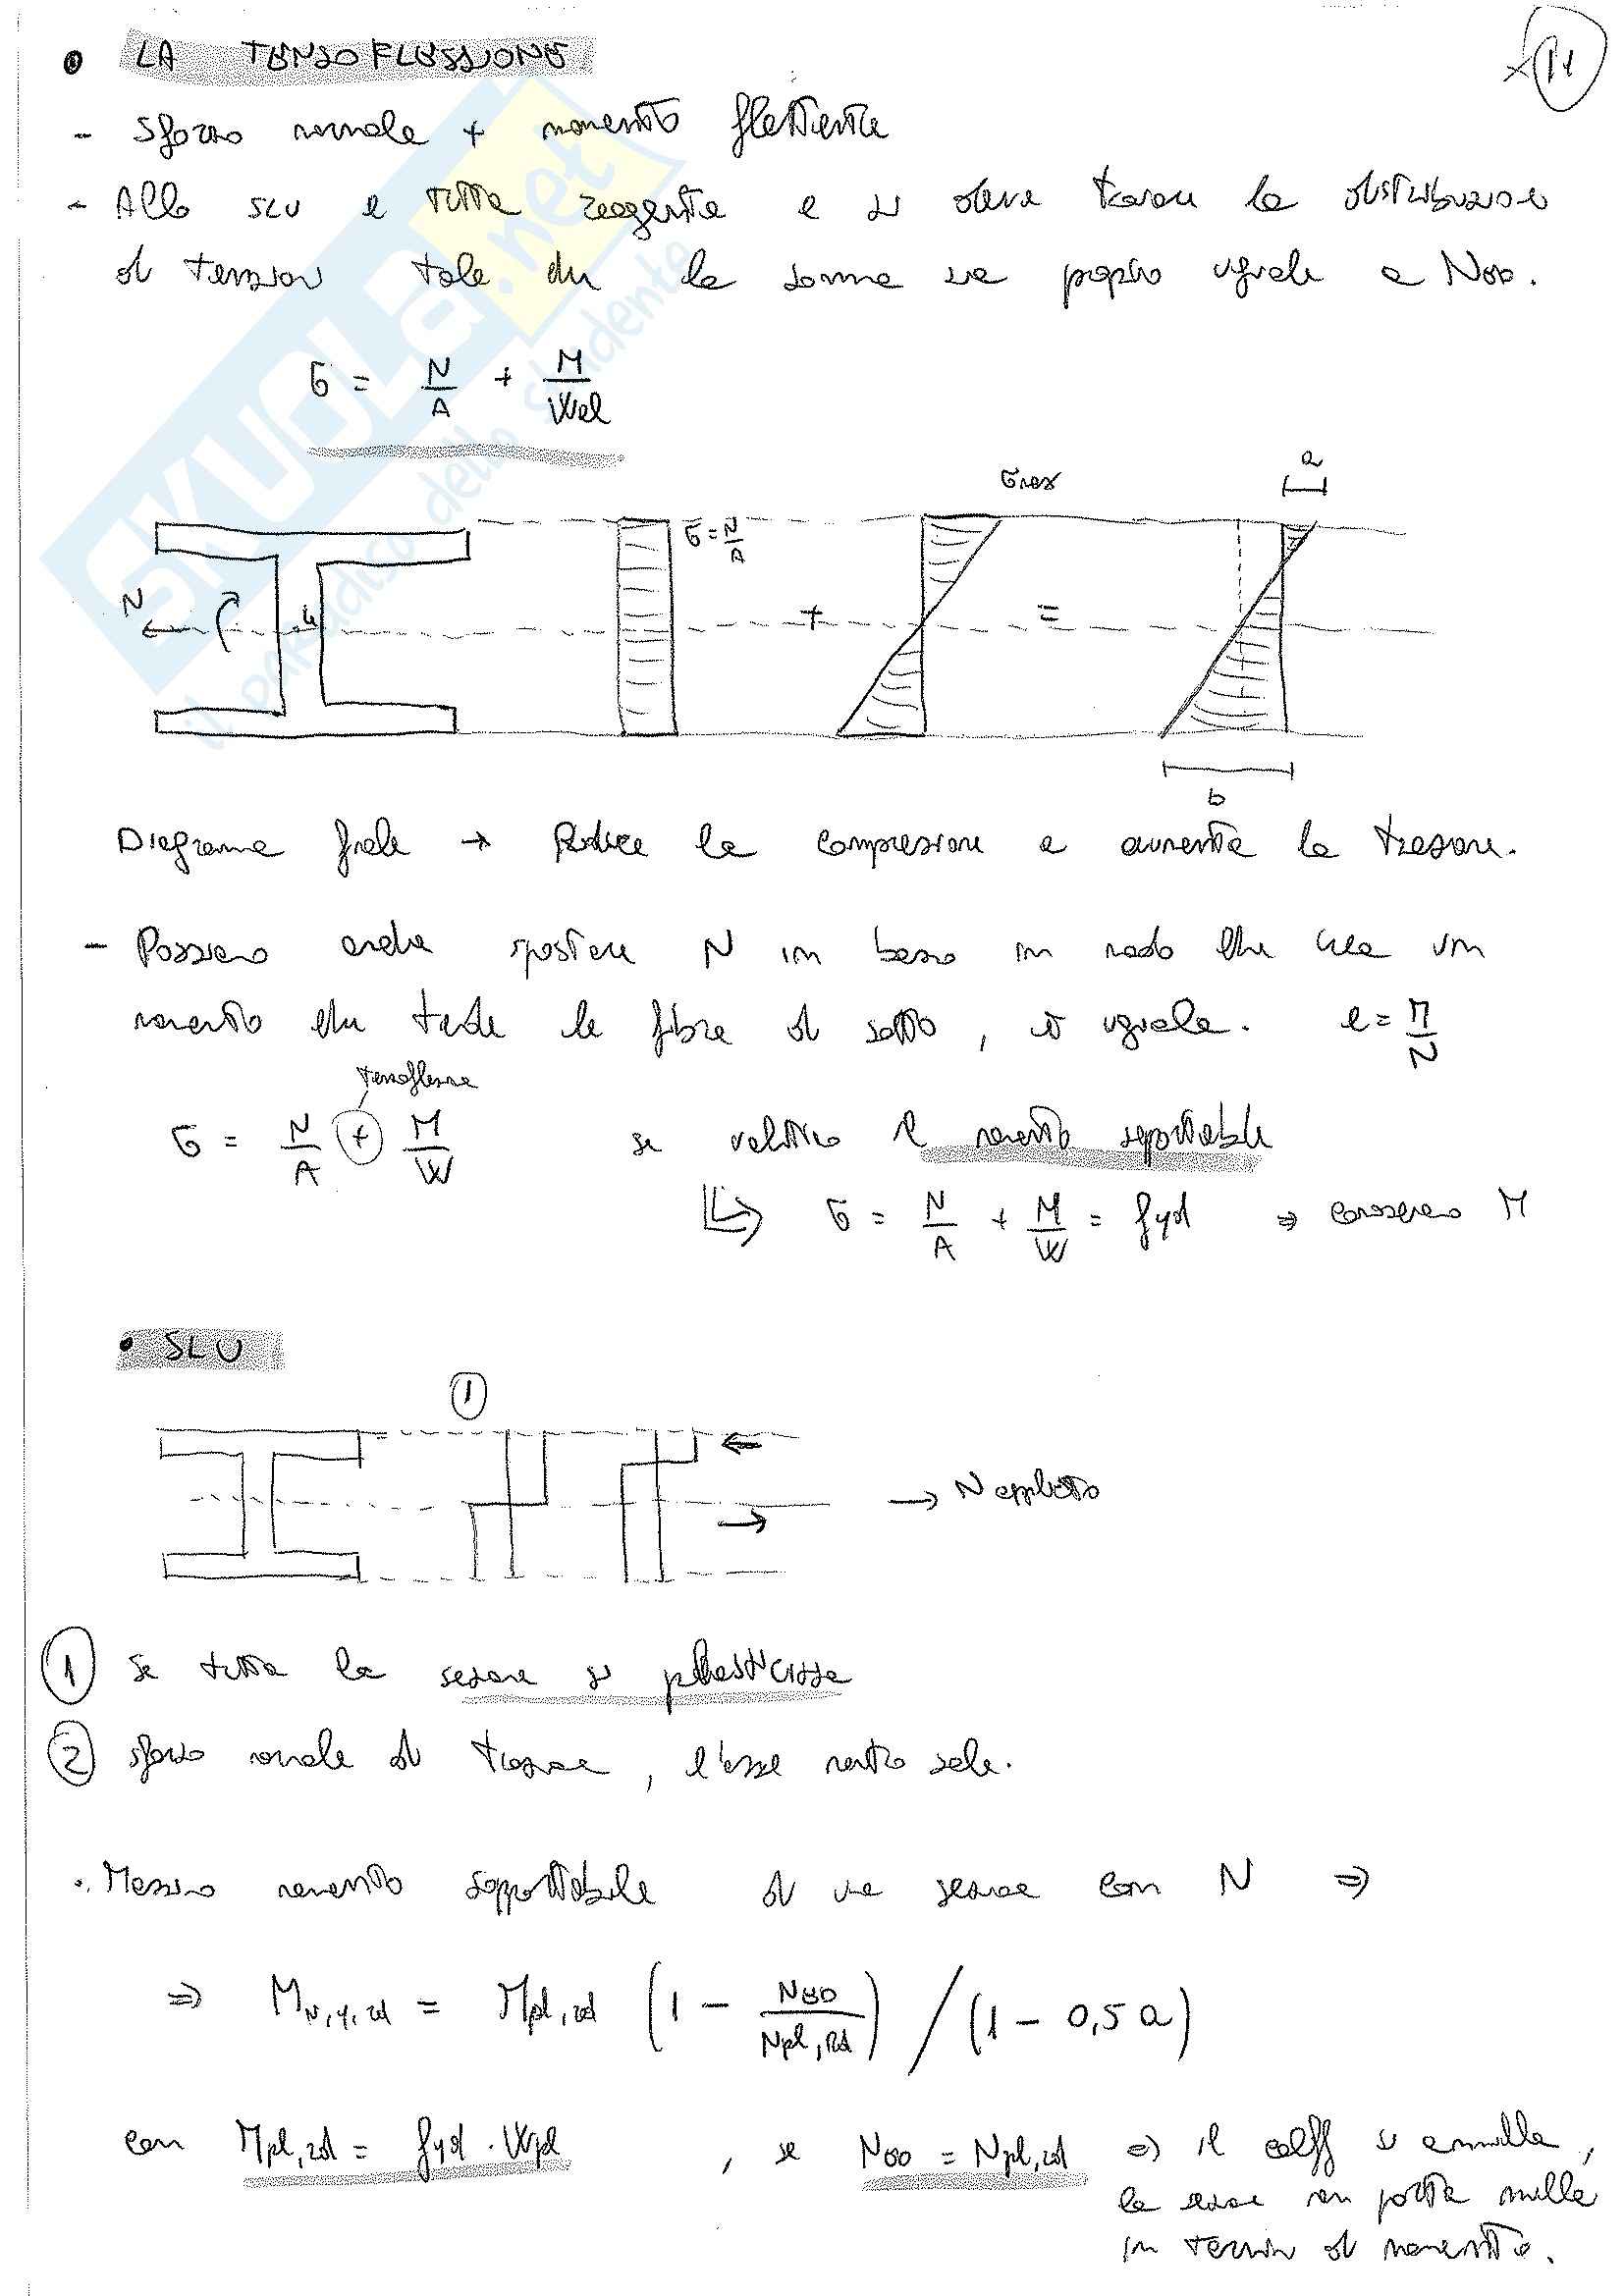 • LA TENSOFLESSIONE
11
- Sforzo normale + momento flettente
- Allo SLU è tutta reagente e si deve trovare la distribuzione
di tensioni tale che la somma sia proprio uguale a NSD.
σ = N/A + M/Wel
σmax
a
σ = N/A
N
G
+ =
b
Diagramma finale → Riduce la compressione e aumenta la trazione.
- Possiamo anche spostare N in basso in modo che crea un
momento che tende le fibre di sotto, è uguale. e = M/N
tensoflessione
σ = N/A + M/W se voltiamo il momento sopportabile
σ = N/A + M/W = fyd ⇒ conosceremo M
• SLU
1
→ N applicato
1 Se tutta la sezione si plasticizza
2 sforzo normale di trazione, l'asse neutro sale.
• Massimo momento sopportabile di una sezione con N ⇒
⇒ MN,y,rd = Mpl,rd (1 - NSD/Npl,Rd) / (1 - 0,5 a)
con Mpl,rd = fyd · Wpl , se NSD = Npl,rd ⇒ il coeff si annulla,
la sezione non porta nulla
in termini di momento.
SKUOLA.net
il paradiso dello studente